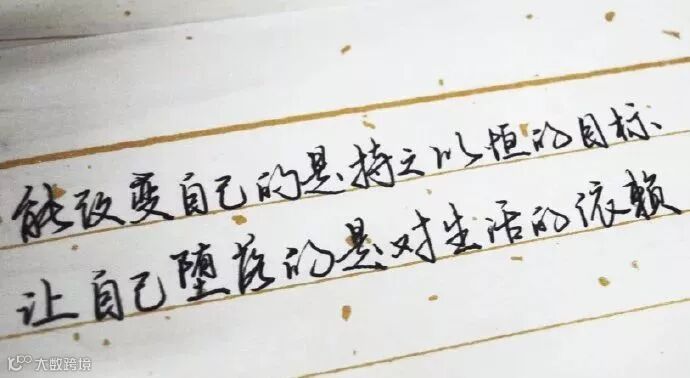 能改变自己的是持之以恒的目标、
让自己堕落的是对生活的依赖
大数跨境